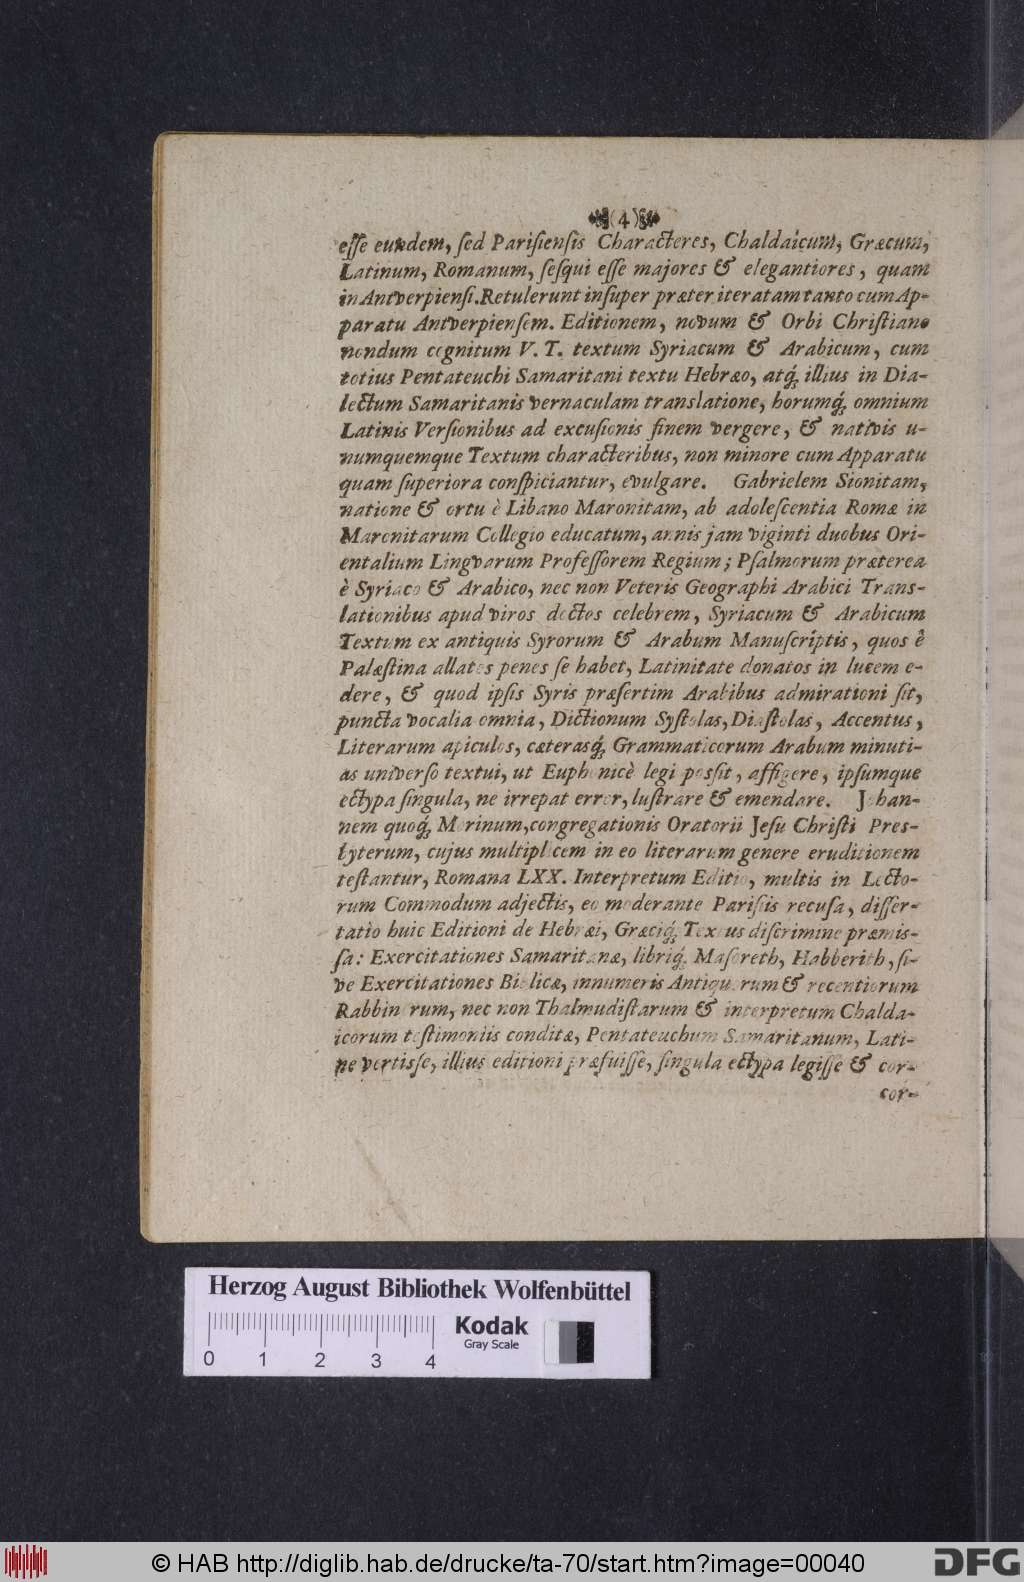 (4)
esse eundem, sed Parisiensis Characteres, Chaldaicum, Græcum,
Latinum, Romanum, sesqui esse majores & elegantiores, quam
in Antverpiensi. Retulerunt insuper præter iteratam tanto cum Ap-
paratu Antverpiensem. Editionem, novum & Orbi Christiano
nondum cognitum V. T. textum Syriacum & Arabicum, cum
totius Pentateuchi Samaritani textu Hebræo, atq́; illius in Dia-
lectum Samaritanis vernaculam translatione, horumq́; omnium
Latinis Versionibus ad excusionis finem vergere, & nativis u-
numquemque Textum characteribus, non minore cum Apparatu
quam superiora conspiciantur, evulgare. Gabrielem Sionitam,
natione & ortu è Libano Maronitam, ab adolescentia Romæ in
Maronitarum Collegio educatum, annis jam viginti duobus Ori-
entalium Lingvarum Professorem Regium; Psalmorum præterea
è Syriaco & Arabico, nec non Veteris Geographi Arabici Trans-
lationibus apud viros doctos celebrem, Syriacum & Arabicum
Textum ex antiquis Syrorum & Arabum Manuscriptis, quos è
Palæstina allatos penes se habet, Latinitate donatos in lucem e-
dere, & quod ipsis Syris præsertim Arabibus admirationi sit,
puncta vocalia omnia, Dictionum Systolas, Diastolas, Accentus,
Literarum apiculos, cæterasq́; Grammaticorum Arabum minuti-
as universo textui, ut Euphonicè legi possit, affigere, ipsumque
ectypa singula, ne irrepat error, lustrare & emendare. Johan-
nem quoq́; Morinum, congregationis Oratorii Jesu Christi Pres-
byterum, cujus multiplicem in eo literarum genere eruditionem
testantur, Romana LXX. Interpretum Editio, multis in Lecto-
rum Commodum adjectis, eo moderante Parisiis recusa, disser-
tatio huic Editioni de Hebræi, Græciq́; Textus discrimine præmis-
sa: Exercitationes Samaritanæ, libriq́; Masoreth, Habberith, si-
ve Exercitationes Biblicæ, innumeris Antiquorum & recentiorum
Rabbinorum, nec non Thalmudistarum & interpretum Chalda-
icorum testimoniis conditæ, Pentateuchum Samaritanum, Lati-
ne vertisse, illius editioni præfuisse, singula ectypa legisse & cor-
cor-
Herzog August Bibliothek Wolfenbüttel
Kodak
Gray Scale
0 1 2 3 4
© HAB http://diglib.hab.de/drucke/ta-70/start.htm?image=00040
DFG